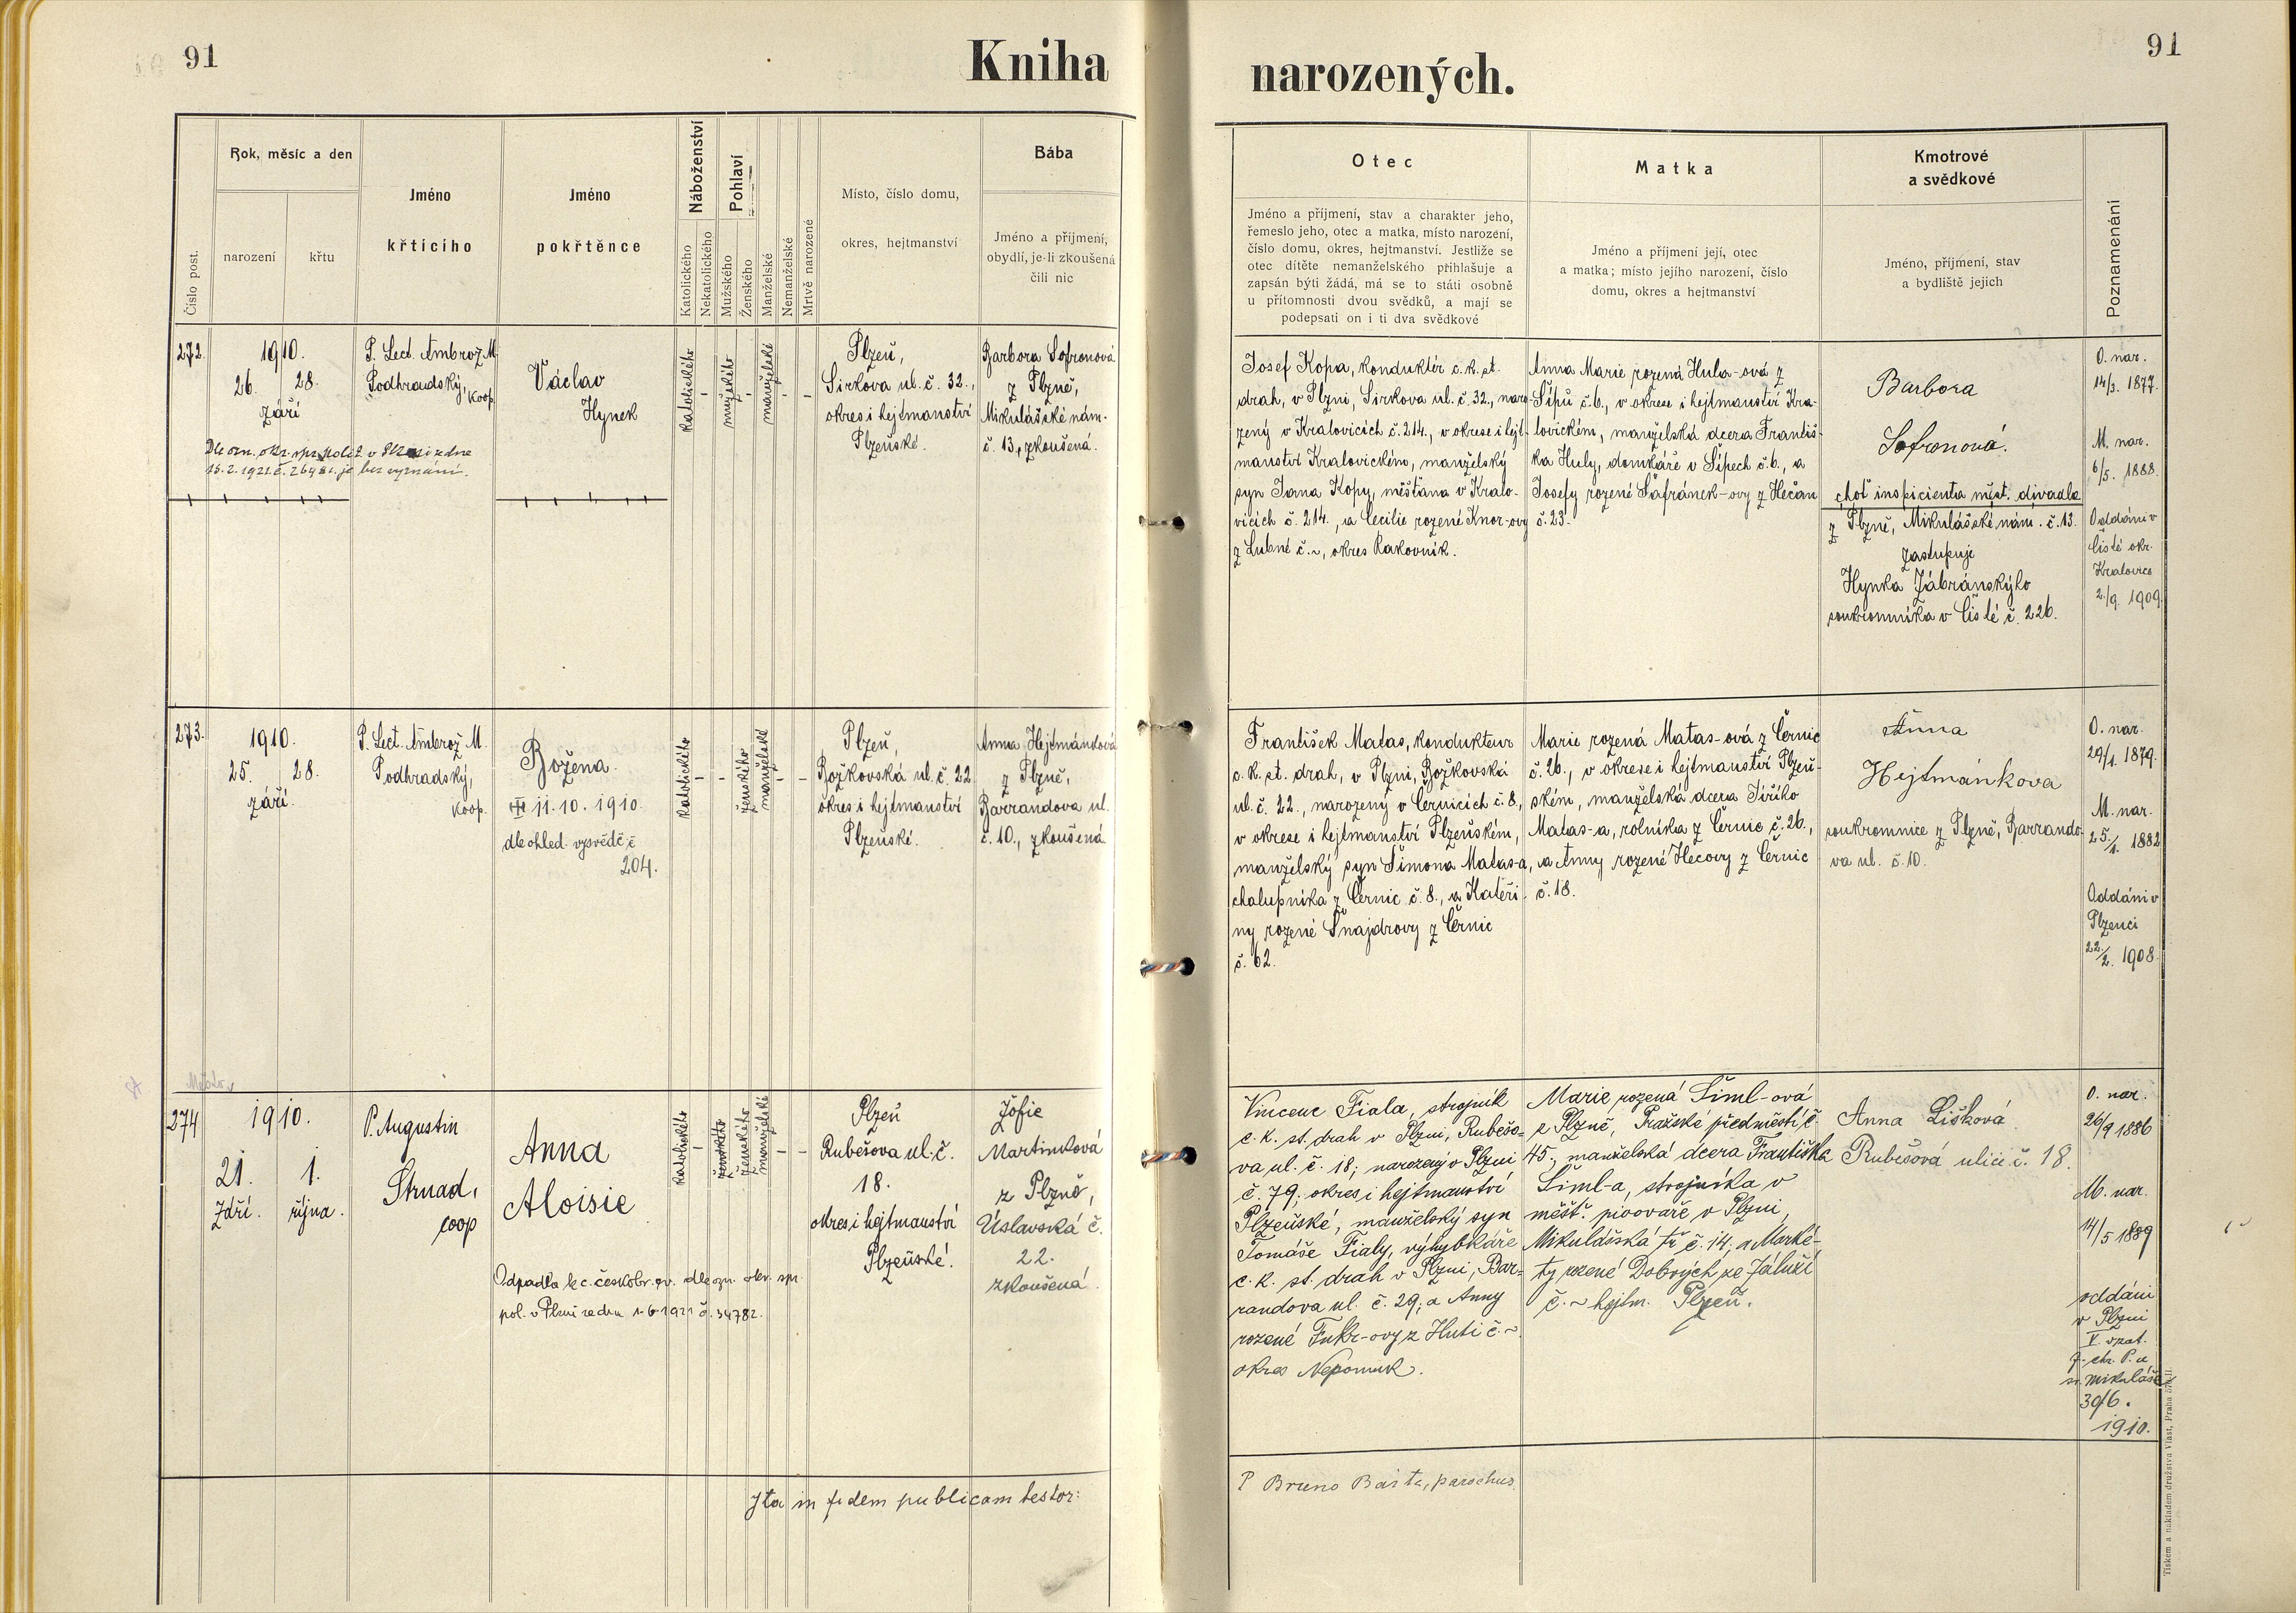 91
Kniha
narozených.
91
Číslo post.
Rok, měsíc a den
narození
křtu
Jméno
křticího
Jméno
pokřtěnce
Náboženství
Katolického
Nekatolického
Pohlaví
Mužského
Ženského
Manželské
Nemanželské
Mrtvě narozené
Místo, číslo domu,
okres, hejtmanství
Bába
Jméno a příjmení,
obydlí, je-li zkoušená
čili nic
Otec
Jméno a příjmení, stav a charakter jeho,
řemeslo jeho, otec a matka, místo narození,
číslo domu, okres, hejtmanství. Jestliže se
otec dítěte nemanželského přihlašuje a
zapsán býti žádá, má se to státi osobně
u přítomnosti dvou svědků, a mají se
podepsati on i ti dva svědkové
Matka
Jméno a příjmení její, otec
a matka; místo jejího narození, číslo
domu, okres a hejtmanství
Kmotrové
a svědkové
Jméno, příjmení, stav
a bydliště jejich
Poznamenání
272.
1910.
26. 28.
září
P. Lect. Ambrož M.
Podhradský,
koop.
Václav
Hynek
katolického
mužského
manželské
Plzeň,
Sirkova ul. č. 32.,
okres i hejtmanství
Plzeňské.
Barbora Sofronová
z Plzně,
Mikulášské nám.
č. 13, zkoušená.
Dle ozn. okr. spr. polit. v Plzni ze dne
16.2.1921 č. 26481. je bez vyznání.
Josef Kopa, konduktér c. k. st.
drah, v Plzni, Sirkova ul. č. 32., naro-
zený v Kralovicích č. 214., v okrese i hejt-
manství Kralovickém, manželský
syn Jana Kopy, měšťana v Kralo-
vicích č. 214., a Cecilie rozené Knor-ovy
z Lubné č. ~, okres Rakovník.
Anna Marie rozená Hula-ová z
Šípů č. 6., v okrese i hejtmanství Kra-
lovickém, manželská dcera Františ-
ka Huly, domkáře v Šípech č. 6., a
Josefy rozené Šafránek-ovy z Hečan
č. 23.
Barbora
Sofronová.
choť inspicienta měst. divadla
z Plzně, Mikulášské nám. č. 13.
zastupuje
Hynka Zábránskýho
soukromníka v Čisté č. 226.
O. nar.
14/3. 1877.
M. nar.
6/5. 1888.
Oddáni v
Čisté okr.
Kralovice
2./9. 1909.
273.
1910.
25. 28.
září.
P. Lect. Ambrož M.
Podhradský,
koop.
Božena.
11.10.1910.
dle ohled. vysvědč. č.
204.
katolického
ženského
manželské
Plzeň,
Božkovská ul. č. 22
okres i hejtmanství
Plzeňské.
Anna Hejtmánková
z Plzně,
Barrandova ul.
č. 10., zkoušená
František Matas, kondukteur
c. k. st. drah, v Plzni, Božkovská
ul. č. 22., narozený v Černicích č. 8.,
v okrese i hejtmanství Plzeňském,
manželský syn Šimona Matas-a,
chalupníka z Černic č. 8., a Kateři-
ny rozené Šnajdrovy z Černic
č. 62.
Marie rozená Matas-ová z Černic
č. 26., v okrese i hejtmanství Plzeň-
ském, manželská dcera Jiřího
Matas-a, rolníka z Černic č. 26.,
a Anny rozené Hecovy z Černic
č. 18.
Anna
Hejtmánkova
soukromnice z Plzně, Barrando-
va ul. č. 10.
O. nar.
29/1. 1879.
M. nar.
25/1. 1882
Oddáni v
Plzenci
22./2. 1908.
274
1910.
21. 1.
Září. října.
P. Augustin
Strnad,
coop
Anna
Aloisie
katolického
ženského
manželské
Plzeň
Rubešova ul. č.
18.
okres i hejtmanství
Plzeňské.
Žofie
Martinková
z Plzně,
Úslavská č.
22.
zkoušená.
Odpadla k c. českobr. ev. dle ozn. okr. spr.
pol. v Plzni ze dne 1.6.1921 č. 34782.
Vincenc Fiala, strojník
c. k. st. drah v Plzni, Rubešo-
va ul. č. 18; narozený v Plzni
č. 79; okres i hejtmanství
Plzeňské, manželský syn
Tomáše Fialy, výhybkáře
c. k. st. drah v Plzni, Bar-
randova ul. č. 29; a Anny
rozené Fukr-ovy z Huti č. ~
okres Nepomuk.
Marie rozená Šiml-ová
z Plzně, Pražské předměstí č.
45; manželská dcera Františka
Šiml-a, strojníka v
měšť. pivovaře v Plzni,
Mikulášská tř č. 14; a Marké-
ty rozené Dobrých ze Záluží
č. ~ hejtm. Plzeň.
Anna Lišková
Rubešová ulice č. 18.
O. nar.
26/9 1886
M. nar.
14/5 1889
oddáni
v Plzni
sv. Mikuláše
30/6.
1910.
Ita in fidem publicam testor:
P Bruno Bárta, parochus.
Tiskem a nákladem družstva Vlast, Praha